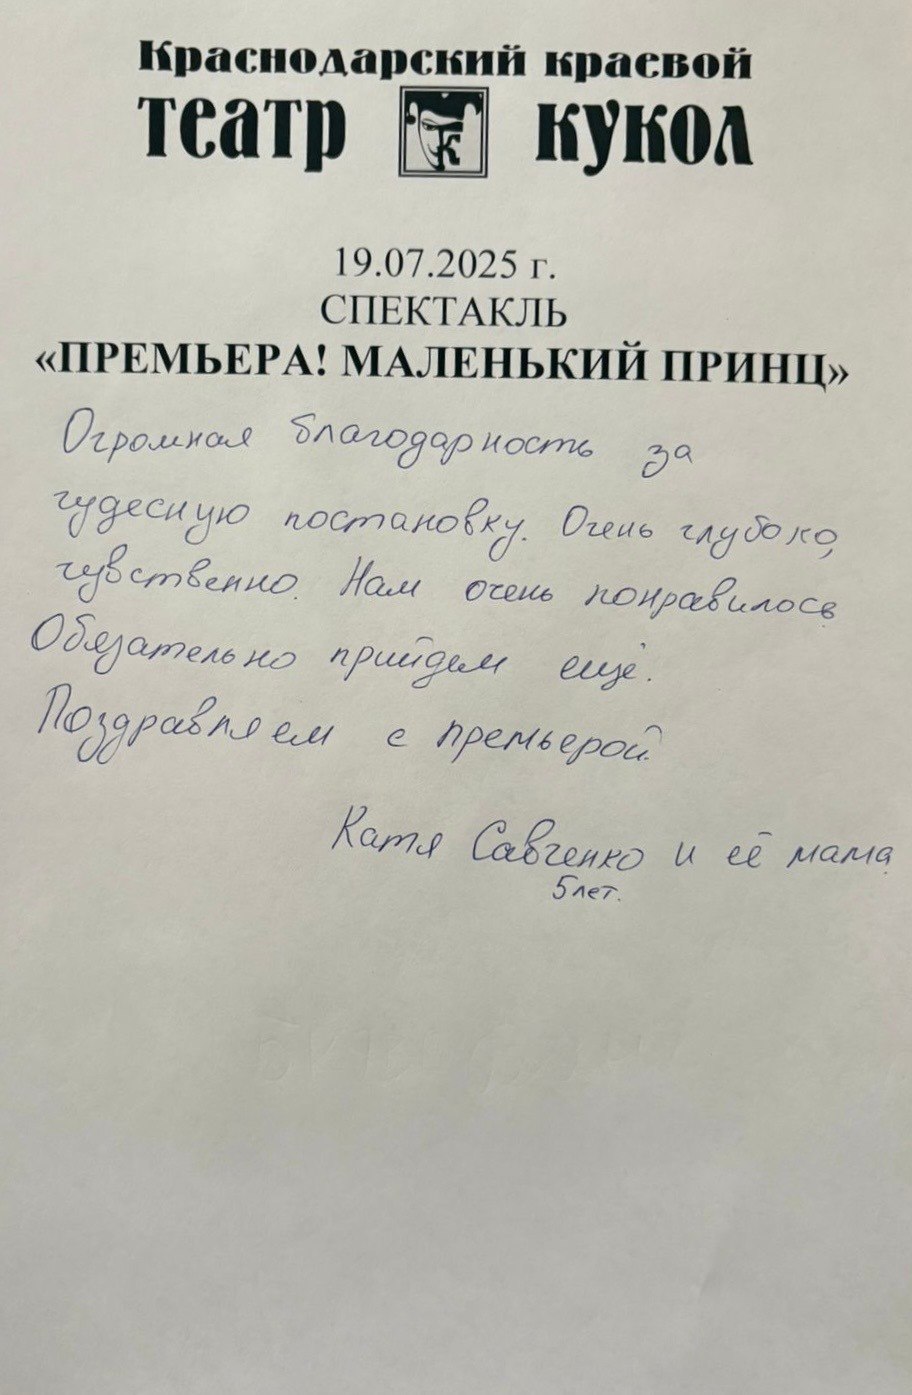 Краснодарский краевой
театр кукол
19.07.2025 г.
СПЕКТАКЛЬ
«ПРЕМЬЕРА! МАЛЕНЬКИЙ ПРИНЦ»
Огромная благодарность за
чудесную постановку. Очень глубоко,
чувственно. Нам очень понравилось
Обязательно прийдем ещё.
Поздравляем с премьерой
Катя Савченко и её мама
5 лет.